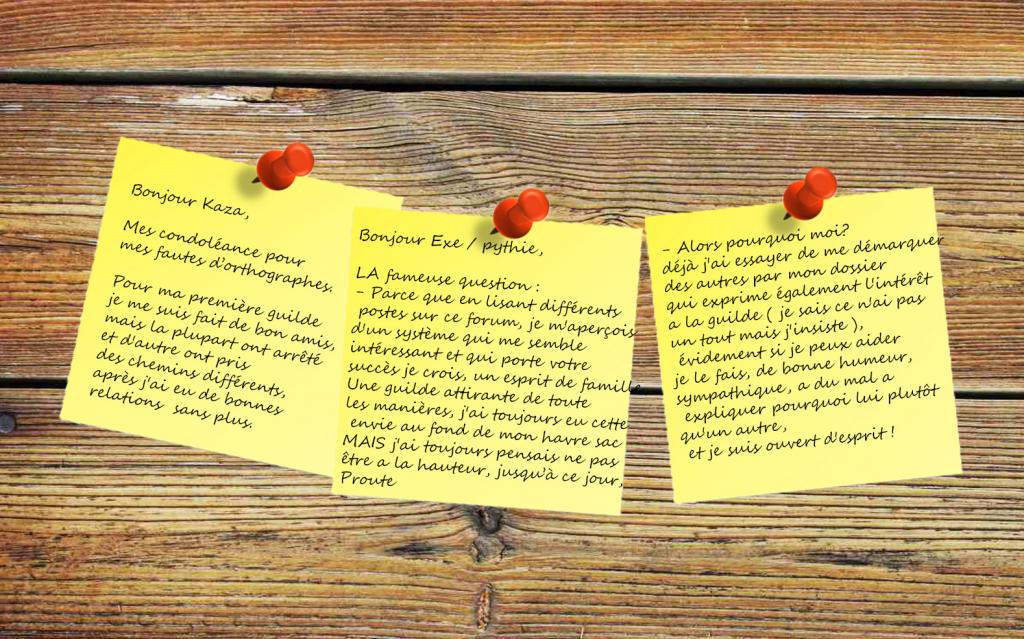 Bonjour Kaza,
Mes condoléance pour
mes fautes d'orthographes.
Pour ma première guilde
je me suis fait de bon amis,
mais la plupart ont arrêté
et d'autre ont pris
des chemins différents,
après j'ai eu de bonnes
relations sans plus.
Bonjour Exe / pythie,
LA fameuse question :
- Parce que en lisant différents
postes sur ce forum, je m'aperçois
d'un système qui me semble
intéressant et qui porte votre
succès je crois, un esprit de famille
Une guilde attirante de toute
les manières, j'ai toujours eu cette
envie au fond de mon havre sac
MAIS j'ai toujours pensais ne pas
être a la hauteur, jusqu'à ce jour,
Proute
- Alors pourquoi moi?
déjà j'ai essayer de me démarquer
des autres par mon dossier
qui exprime également l'intérêt
a la guilde ( je sais ce n'ai pas
un tout mais j'insiste ),
évidement si je peux aider
je le fais, de bonne humeur,
sympathique, a du mal a
expliquer pourquoi lui plutôt
qu'un autre,
et je suis ouvert d'esprit !